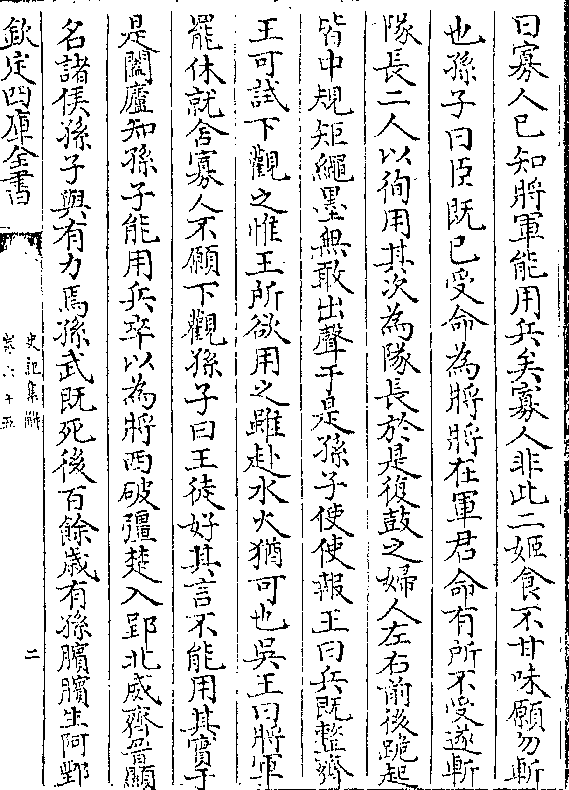 曰寡人已知將軍能用兵矣寡人非此二姬食不甘味願勿斬
也孫子曰臣既已受命為將將在軍君命有所不受遂斬
隊長二人以徇用其次為隊長於是復鼓之婦人左右前後跪起
皆中規矩繩墨無敢出聲于是孫子使使報王曰兵既整齊
王可試下觀之惟王所欲用之雖赴水火猶可也吳王曰將軍
罷休就舍寡人不願下觀孫子曰王徒好其言不能用其實于
是闔廬知孫子能用兵卒以為將西破彊楚入郢北威齊晉顯
名諸侯孫子與有力焉孫武既死後百餘歳有孫臏臏生阿鄄
欽定四庫全書
史記集解
卷六十五
二